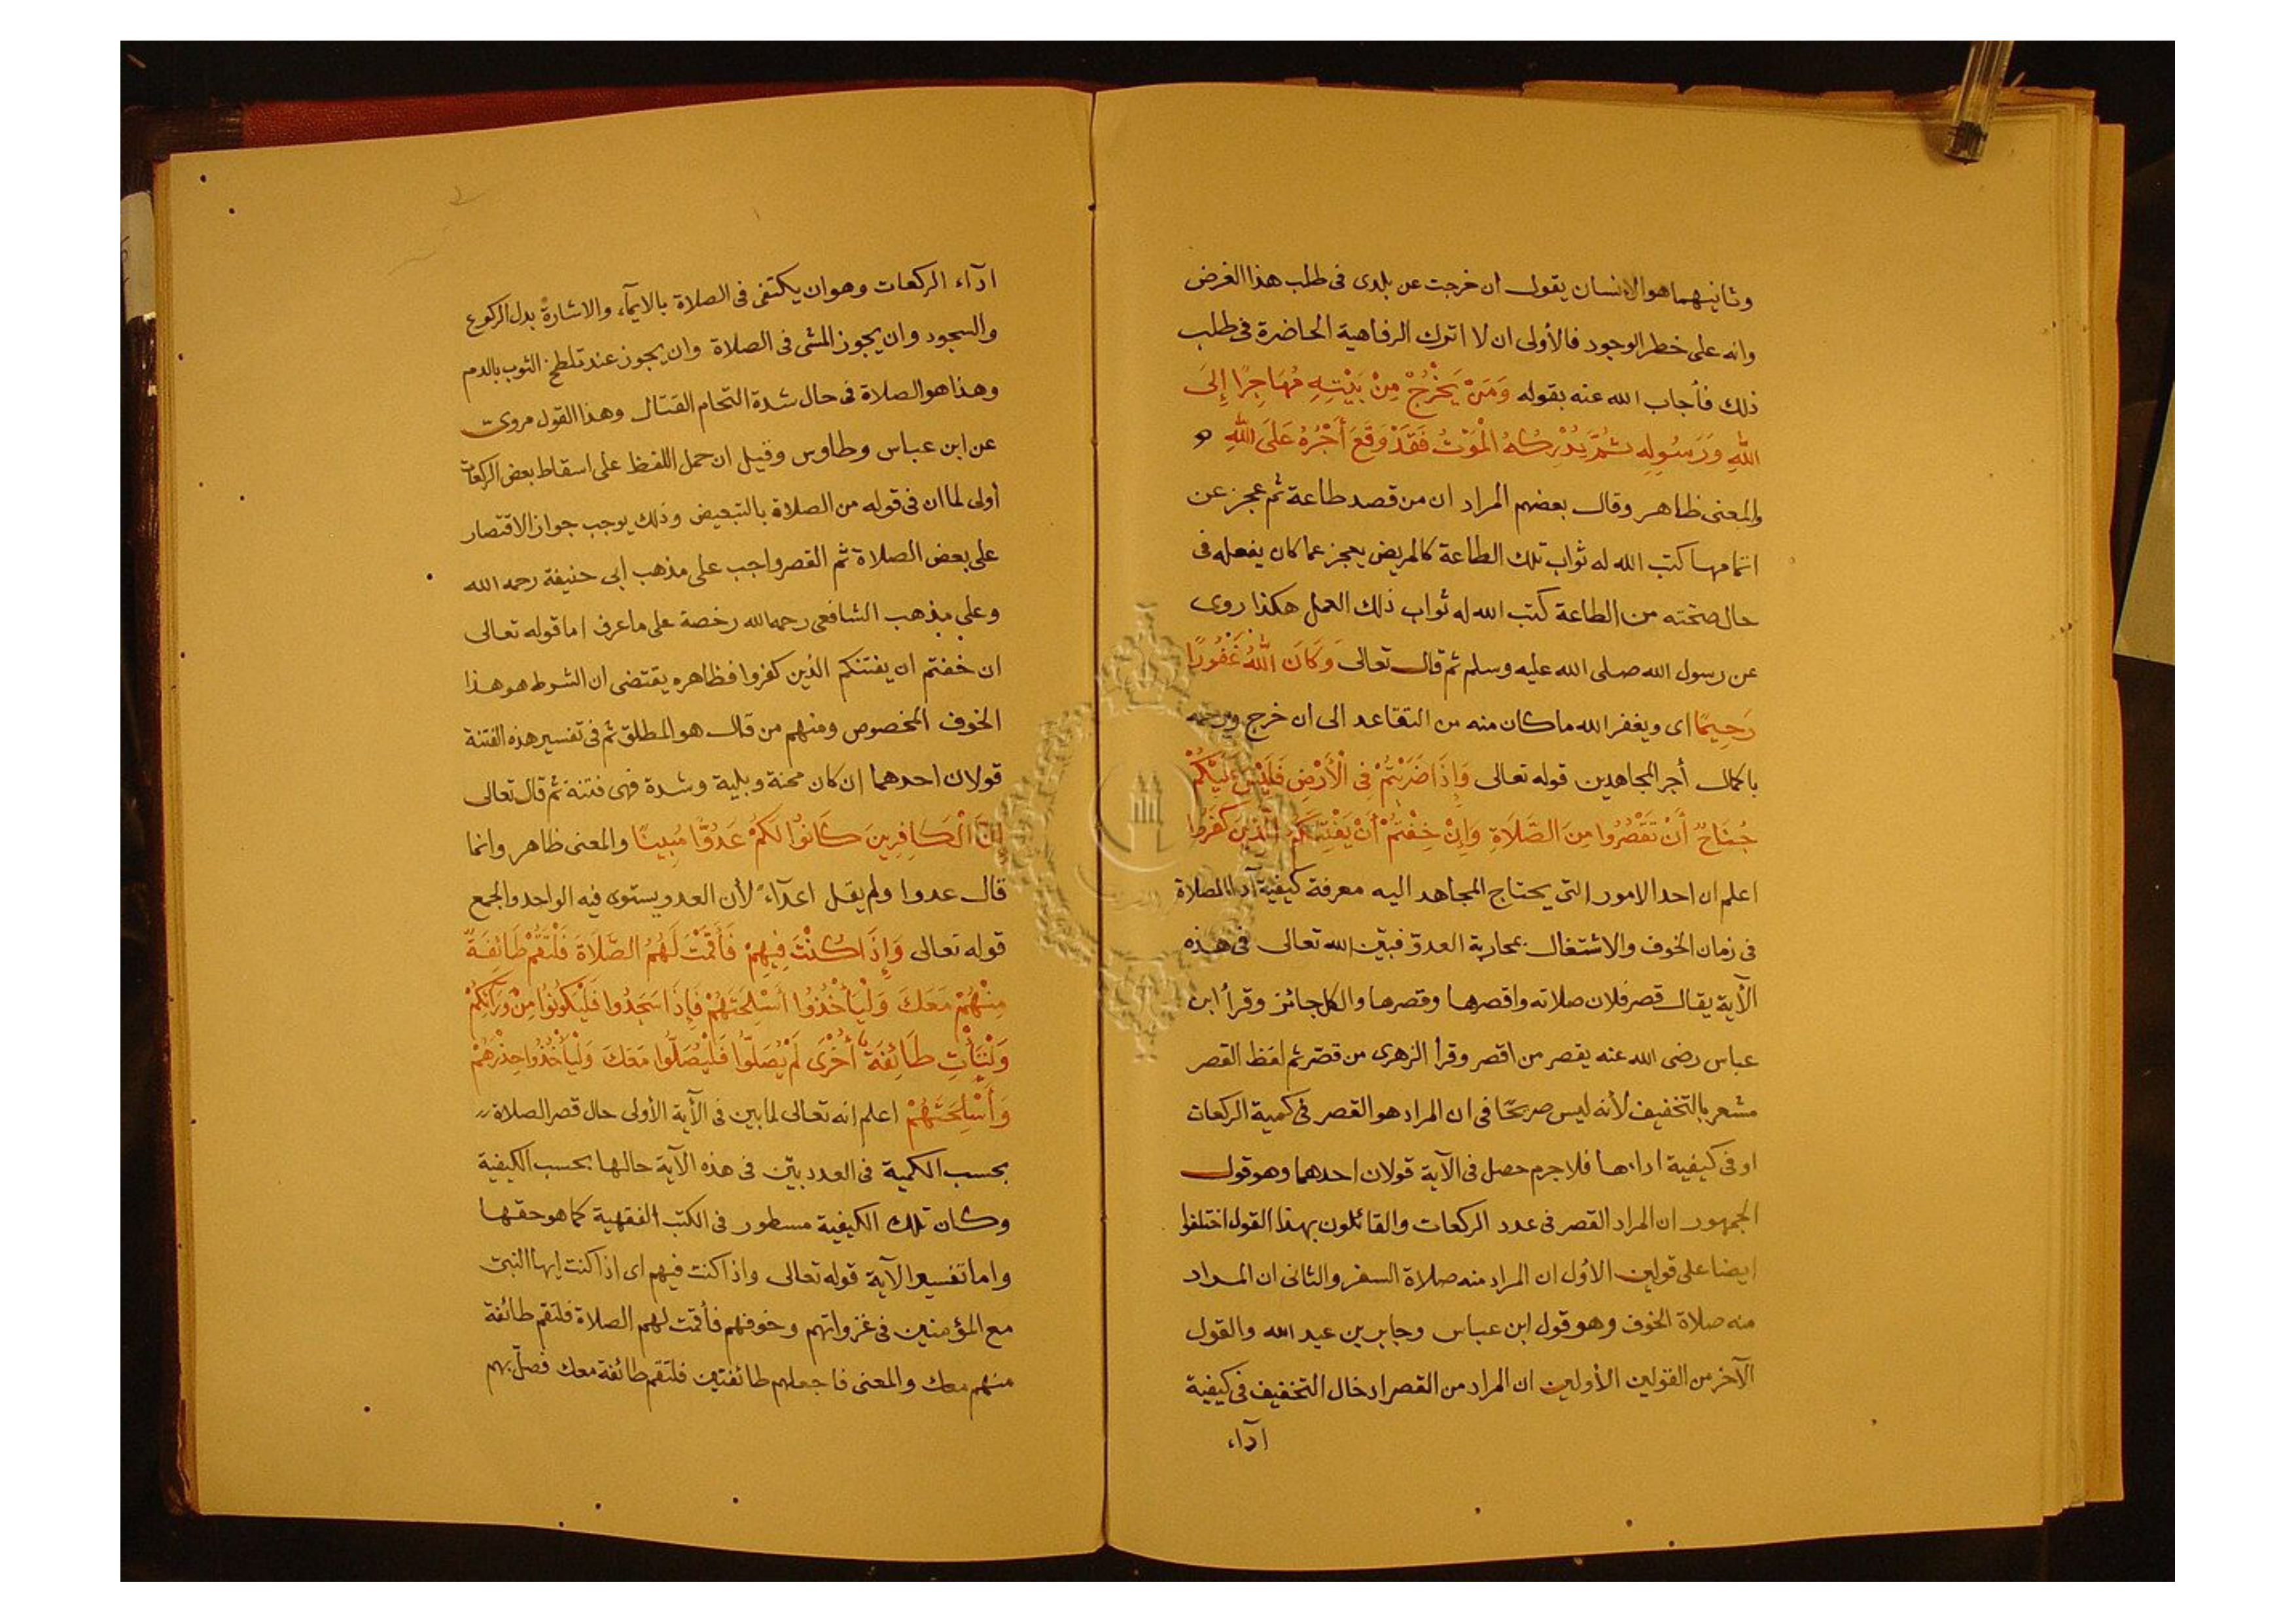 وثانيهما هو الانسان يقول ان خرجت عن بلدى فى طلب هذا الغرض
وانه على خطر الوجود فالأولى ان لا اترك الرفاهية الحاضرة فى طلب
ذلك فأجاب الله عنه بقوله وَمَنْ يَخْرُجْ مِنْ بَيْتِهِ مُهَاجِرًا إِلَى
اللهِ وَرَسُولِهِ ثُمَّ يُدْرِكْهُ الْمَوْتُ فَقَدْ وَقَعَ أَجْرُهُ عَلَى اللهِ
والمعنى ظاهر وقال بعضهم المراد ان من قصد طاعة ثم عجز عن
اتمامها كتب الله له ثواب تلك الطاعة كالمريض يعجز عما كان يفعله فى
حال صحته من الطاعة كتب الله له ثواب ذلك العمل هكذا روى
عن رسول الله صلى الله عليه وسلم ثم قال تعالى وَكَانَ اللهُ غَفُورًا
رَحِيمًا اى ويغفر الله ما كان منه من التقاعد الى ان خرج ورحمه
باكمال أجر المجاهدين قوله تعالى وَإِذَا ضَرَبْتُمْ فِى الْأَرْضِ فَلَيْسَ عَلَيْكُمْ
جُنَاحٌ أَنْ تَقْصُرُوا مِنَ الصَّلَاةِ وَإِنْ خِفْتُمْ أَنْ يَفْتِنَكُمُ الَّذِينَ كَفَرُوا
اعلم ان احد الامور التى يحتاج المجاهد اليه معرفة كيفية آداء الصلاة
فى زمان الخوف والاشتغال بمحاربة العدوّ فبيّن الله تعالى فى هذه
الآية يقال قصر فلان صلاته واقصرها وقصرها والكل جائز وقرأ ابن
عباس رضى الله عنه يقصر من اقصر وقرأ الزهرى من قصّر ثم لفظ القصر
مشعر بالتخفيف لأنه ليس صريحًا فى ان المراد هو القصر فى كمية الركعات
او فى كيفية ادائها فلا جرم حصل فى الآية قولان احدهما وهو قول
الجمهور ان المراد القصر فى عدد الركعات والقائلون بهذا القول اختلفوا
ايضا على قولين الأول ان المراد منه صلاة السفر والثانى ان المراد
منه صلاة الخوف وهو قول ابن عباس وجابر بن عبد الله والقول
الآخر من القولين الأولين ان المراد من القصر ادخال التخفيف فى كيفية
ادآء
ادآء الركعات وهو ان يكتفى فى الصلاة بالايمآء والاشارة بدل الركوع
والسجود وان يجوز المشى فى الصلاة وان يجوز عند تلطخ الثوب بالدم
وهذا هو الصلاة فى حال شدة التحام القتال وهذا القول مروىّ
عن ابن عباس وطاوس وقيل ان حمل اللفظ على اسقاط بعض الركعات
أولى لما ان فى قوله من الصلاة بالتبعيض وذلك يوجب جواز الاقتصار
على بعض الصلاة ثم القصر واجب على مذهب ابى حنيفة رحمه الله
وعلى مذهب الشافعى رحمه الله رخصة على ما عرف اما قوله تعالى
ان خفتم ان يفتنكم الذين كفروا فظاهره يقتضى ان الشرط هو هذا
الخوف المخصوص ومنهم من قال هو المطلق ثم فى تفسير هذه الفتنة
قولان احدهما ان كان محنة وبلية وشدة فهى فتنة ثم قال تعالى
إِنَّ الْكَافِرِينَ كَانُوا لَكُمْ عَدُوًّا مُبِينًا والمعنى ظاهر وانما
قال عدوا ولم يقل اعدآءً لأن العدو يستوى فيه الواحد والجمع
قوله تعالى وَإِذَا كُنْتَ فِيهِمْ فَأَقَمْتَ لَهُمُ الصَّلَاةَ فَلْتَقُمْ طَائِفَةٌ
مِنْهُمْ مَعَكَ وَلْيَأْخُذُوا أَسْلِحَتَهُمْ فَإِذَا سَجَدُوا فَلْيَكُونُوا مِنْ وَرَآئِكُمْ
وَلْتَأْتِ طَائِفَةٌ أُخْرَى لَمْ يُصَلُّوا فَلْيُصَلُّوا مَعَكَ وَلْيَأْخُذُوا حِذْرَهُمْ
وَأَسْلِحَتَهُمْ اعلم انه تعالى لما بين فى الآية الأولى حال قصر الصلاة
بحسب الكمية فى العدد بيّن فى هذه الآية حالها بحسب الكيفية
وكان تلك الكيفية مسطور فى الكتب الفقهية كما هو حقها
واما تفسير الآية قوله تعالى واذا كنت فيهم اى اذا كنت ايها النبىّ
مع المؤمنين فى غزواتهم وخوفهم فأقمت لهم الصلاة فلتقم طائفة
منهم معك والمعنى فاجعلهم طائفتين فلتقم طائفة معك فصلّ بهم